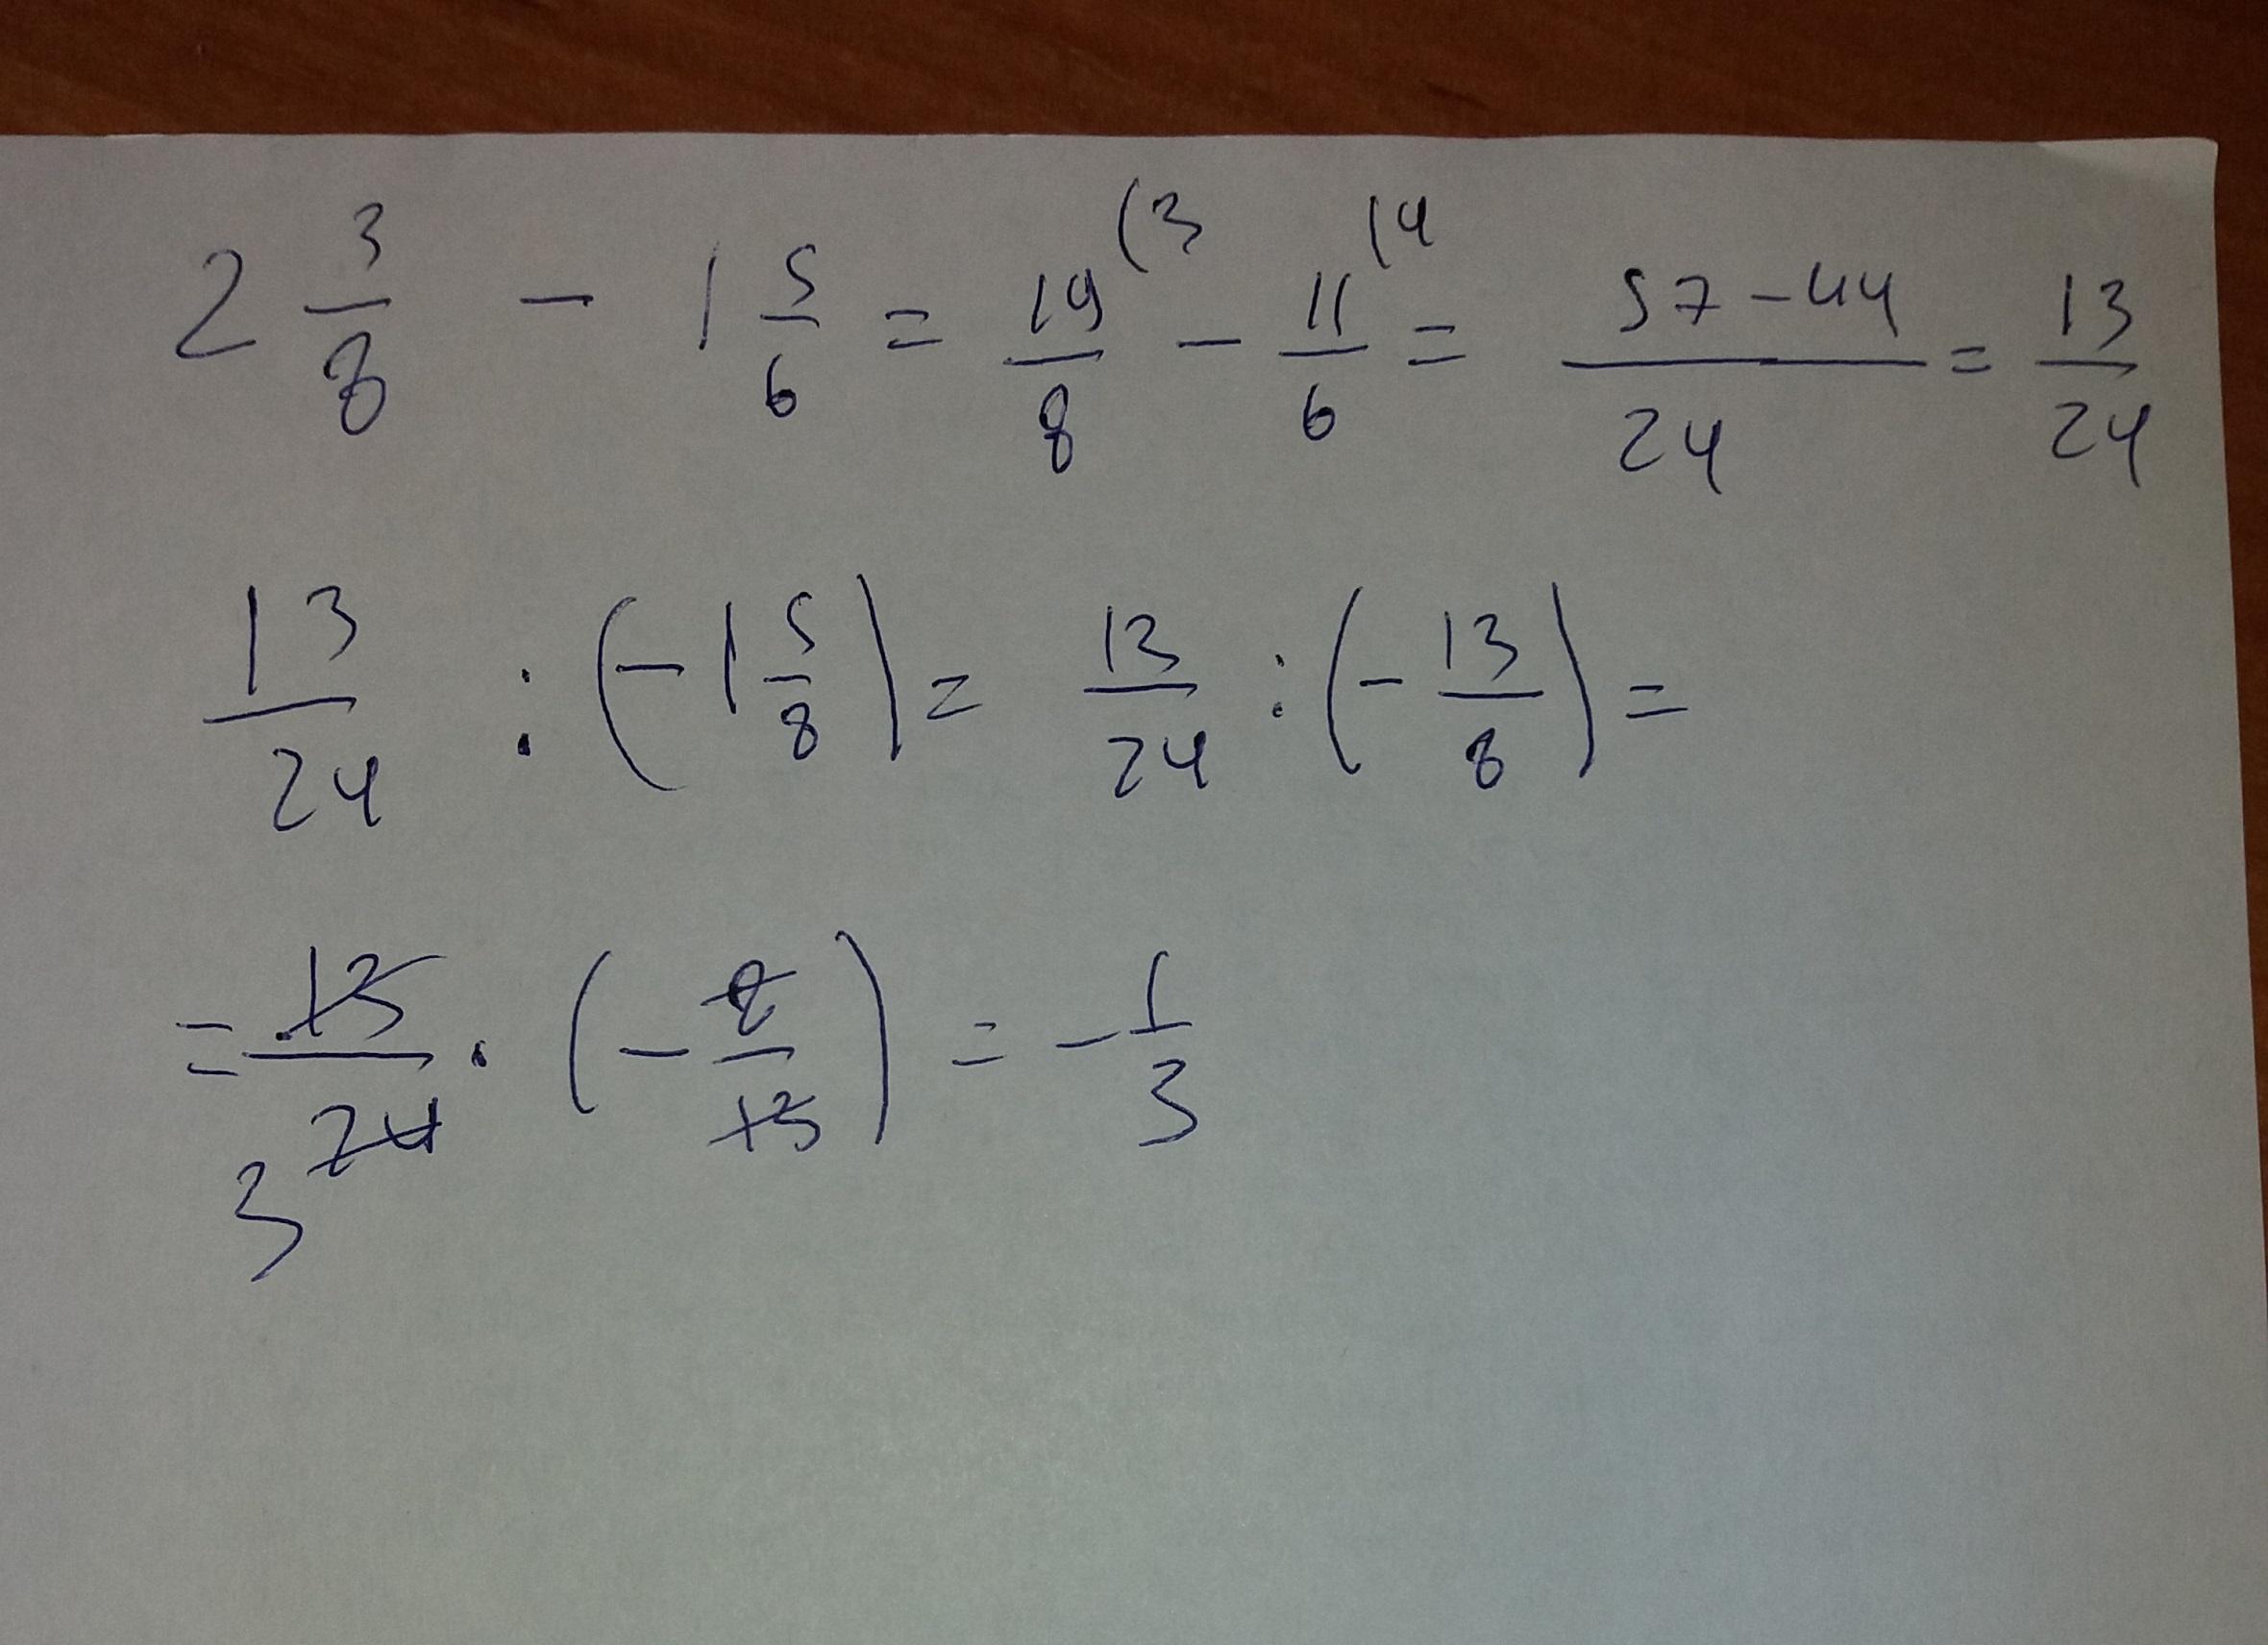 2 3/8 - 1 5/6 = 19/8 (3 - 11/6 (4 = 57-44/24 = 13/24
13/24 : (-1 5/8) = 13/24 : (-13/8) =
= 13/24 · (-8/13) = -1/3
3